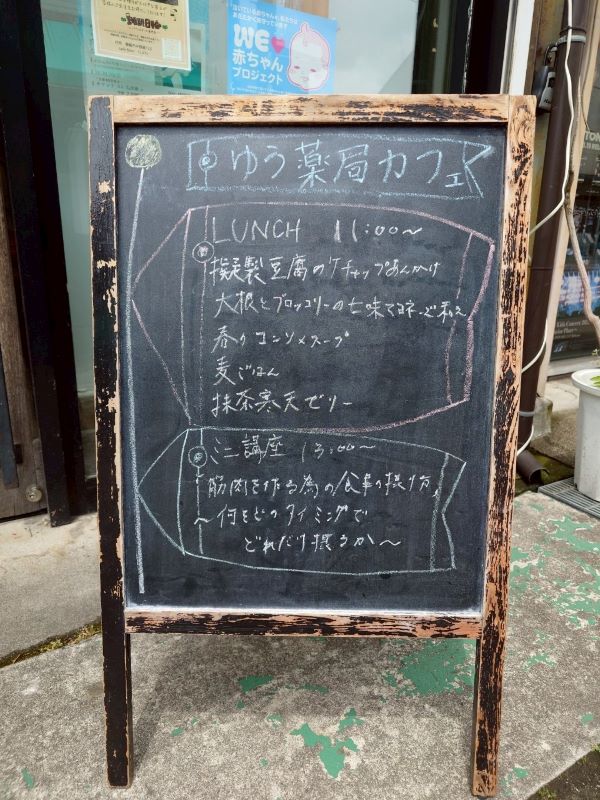 WE
赤ちゃん
プロジェクト
ゆう薬局カフェ
LUNCH 11:00〜
擬製豆腐のケチャップあんかけ
大根とブロッコリーの七味マヨネーズ和え
春のコンソメスープ
麦ごはん
抹茶寒天ゼリー
ミニ講座 13:00〜
筋肉を作る為の食事の摂り方
〜何をどのタイミングで
どれだけ摂るか〜